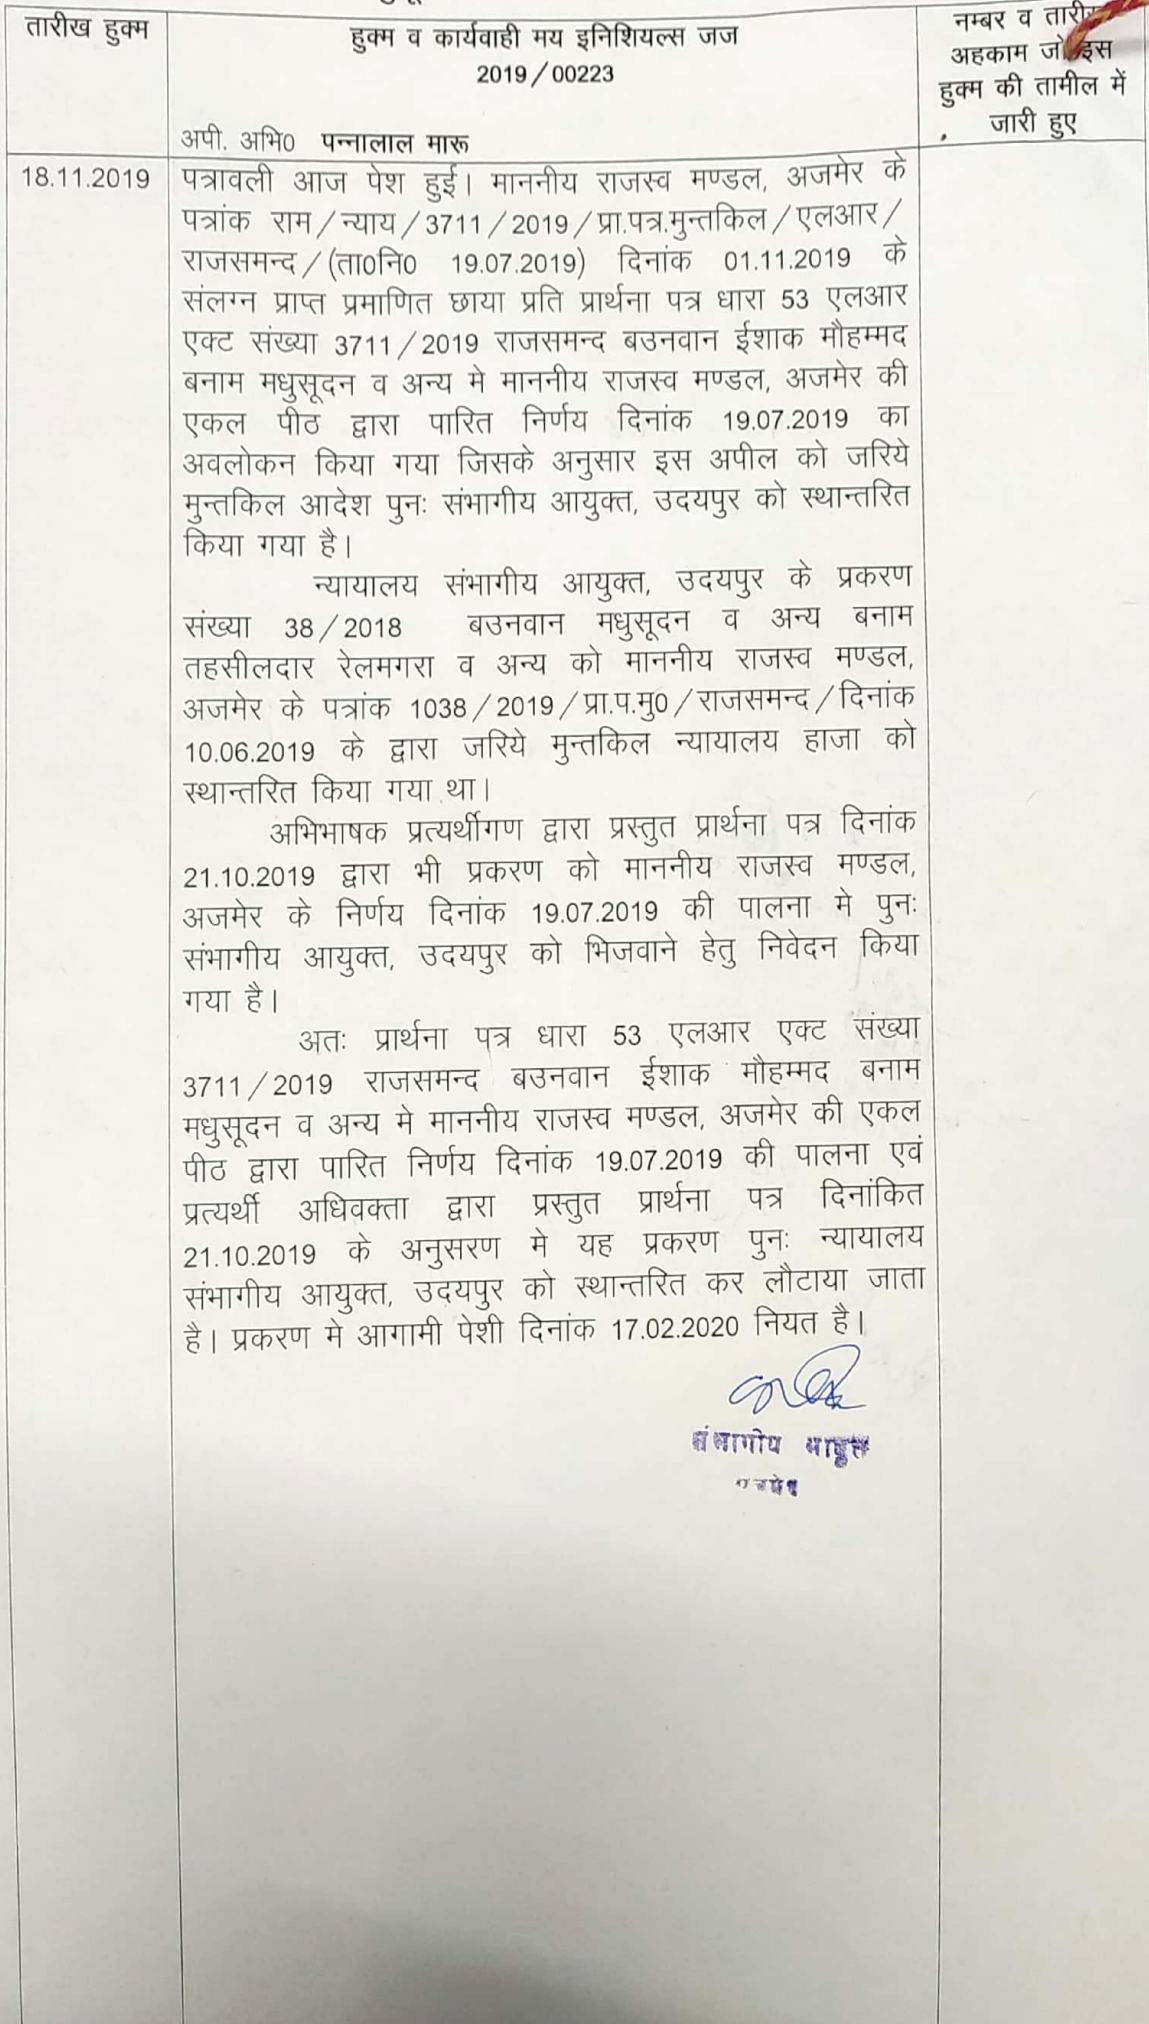 तारीख हुक्म
हुक्म व कार्यवाही मय इनिशियल्स जज
2019/00223
अपी. अभि0 पन्नालाल मारू
नम्बर व
अहकाम जो इस
हुक्म की तामील में
जारी हुए
18.11.2019
पत्रावली आज पेश हुई। माननीय राजस्व मण्डल, अजमेर के
पत्रांक राम/न्याय/3711/2019/प्रा.पत्र.मुन्तकिल/एलआर/
राजसमन्द/(ता0नि0 19.07.2019) दिनांक 01.11.2019 के
संलग्न प्राप्त प्रमाणित छाया प्रति प्रार्थना पत्र धारा 53 एलआर
एक्ट संख्या 3711/2019 राजसमन्द बउनवान ईशाक मौहम्मद
बनाम मधुसूदन व अन्य मे माननीय राजस्व मण्डल, अजमेर की
एकल पीठ द्वारा पारित निर्णय दिनांक 19.07.2019 का
अवलोकन किया गया जिसके अनुसार इस अपील को जरिये
मुन्तकिल आदेश पुनः संभागीय आयुक्त, उदयपुर को स्थान्तरित
किया गया है।
न्यायालय संभागीय आयुक्त, उदयपुर के प्रकरण
संख्या 38/2018 बउनवान मधुसूदन व अन्य बनाम
तहसीलदार रेलमगरा व अन्य को माननीय राजस्व मण्डल,
अजमेर के पत्रांक 1038/2019/प्रा.प.मु0/राजसमन्द/दिनांक
10.06.2019 के द्वारा जरिये मुन्तकिल न्यायालय हाजा को
स्थान्तरित किया गया था।
अभिभाषक प्रत्यर्थीगण द्वारा प्रस्तुत प्रार्थना पत्र दिनांक
21.10.2019 द्वारा भी प्रकरण को माननीय राजस्व मण्डल,
अजमेर के निर्णय दिनांक 19.07.2019 की पालना मे पुनः
संभागीय आयुक्त, उदयपुर को भिजवाने हेतु निवेदन किया
गया है।
अतः प्रार्थना पत्र धारा 53 एलआर एक्ट संख्या
3711/2019 राजसमन्द बउनवान ईशाक मौहम्मद बनाम
मधुसूदन व अन्य मे माननीय राजस्व मण्डल, अजमेर की एकल
पीठ द्वारा पारित निर्णय दिनांक 19.07.2019 की पालना एवं
प्रत्यर्थी अधिवक्ता द्वारा प्रस्तुत प्रार्थना पत्र दिनांकित
21.10.2019 के अनुसरण मे यह प्रकरण पुनः न्यायालय
संभागीय आयुक्त, उदयपुर को स्थान्तरित कर लौटाया जाता
है। प्रकरण मे आगामी पेशी दिनांक 17.02.2020 नियत है।
संभागीय आयुक्त